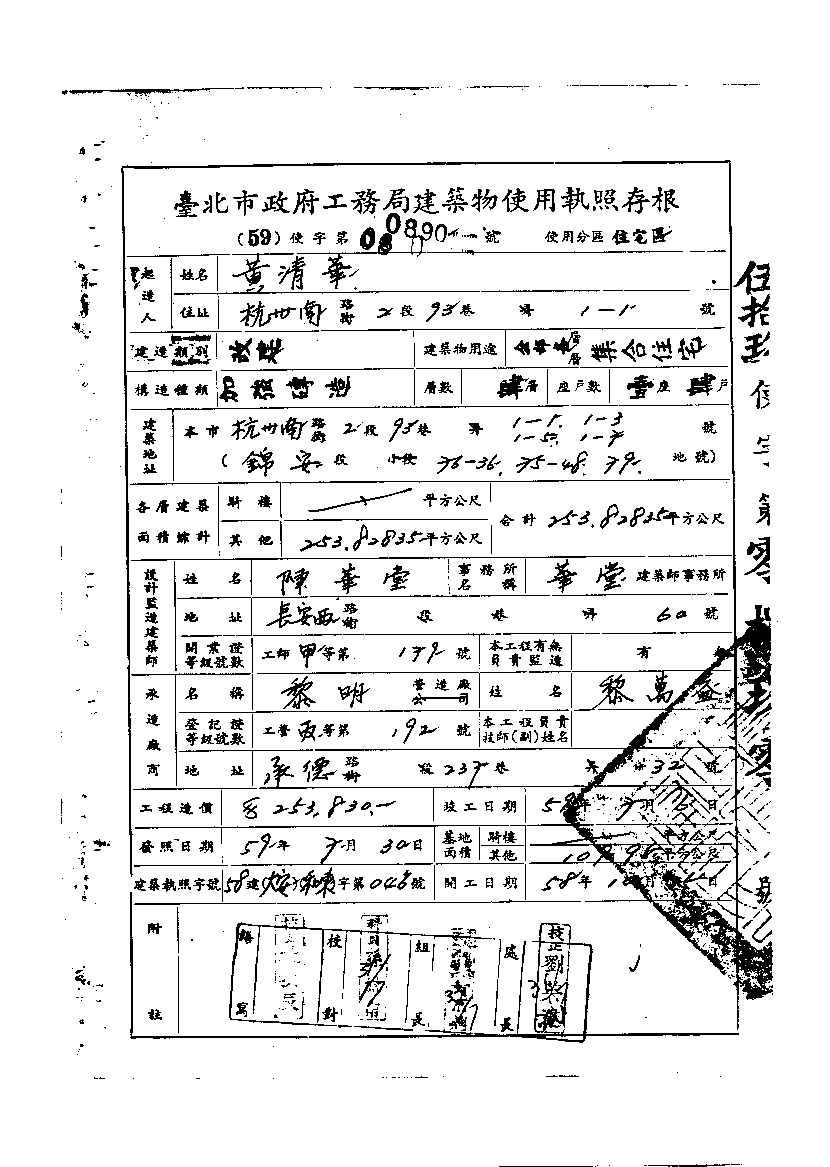 臺北市政府工務局建築物使用執照存根
(59) 使字第 0890 號 使用分區 住宅區
起造人 姓名 黃清華
住址 杭州南 路街 2段 93巷 弄 1-1 號
建造類別 改建 建築物用途 集合住宅
構造種類 加強磚造 層數 肆層 座戶數 壹座 肆戶
建築地址 本市 杭州南 路街 2段 93巷 弄 1-1. 1-3 1-5. 1-7 號
(錦安段 小段 36-36. 35-48. 79. 地號)
各層建築面積總計 騎樓 平方公尺 合計 253.82835平方公尺
其他 253.82835平方公尺
設計監造建築師 姓名 陳華堂 事務所名稱 華堂 建築師事務所
地址 長安西 路街 段 巷 弄 60 號
開業證等級號數 工師甲等第 179 號 本工程有無負責監造 有
承造廠商 名稱 黎明 營造廠公司 姓名 黎萬益
登記證等級號數 工營丙等第 192 號 本工程負責技師(副)姓名
地址 承德 路街 段 237巷 弄 32 號
工程造價 253,830.- 竣工日期 58年 月 日
發照日期 59年 7月 30日 基地面積 騎樓 平方公尺
其他 平方公尺
建築執照字號 58建 字第046號 開工日期 58年 月 日
附註 繕寫 校對 組長 處長
伍拾玖使字第零
號